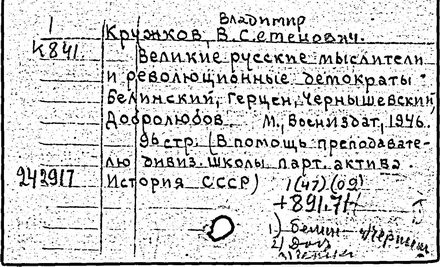 1
Владимир
Кружков, В. Семенович.
К841.
Великие русские мыслители
и революционные демократы
Белинский, Герцен, Чернышевский,
Добролюбов. М., Воениздат, 1946.
96 стр. (В помощь преподавате-
лю дивиз. школы парт. актива.
242917 История СССР)
1(47)(09)
+891.71
1) Белин
2)